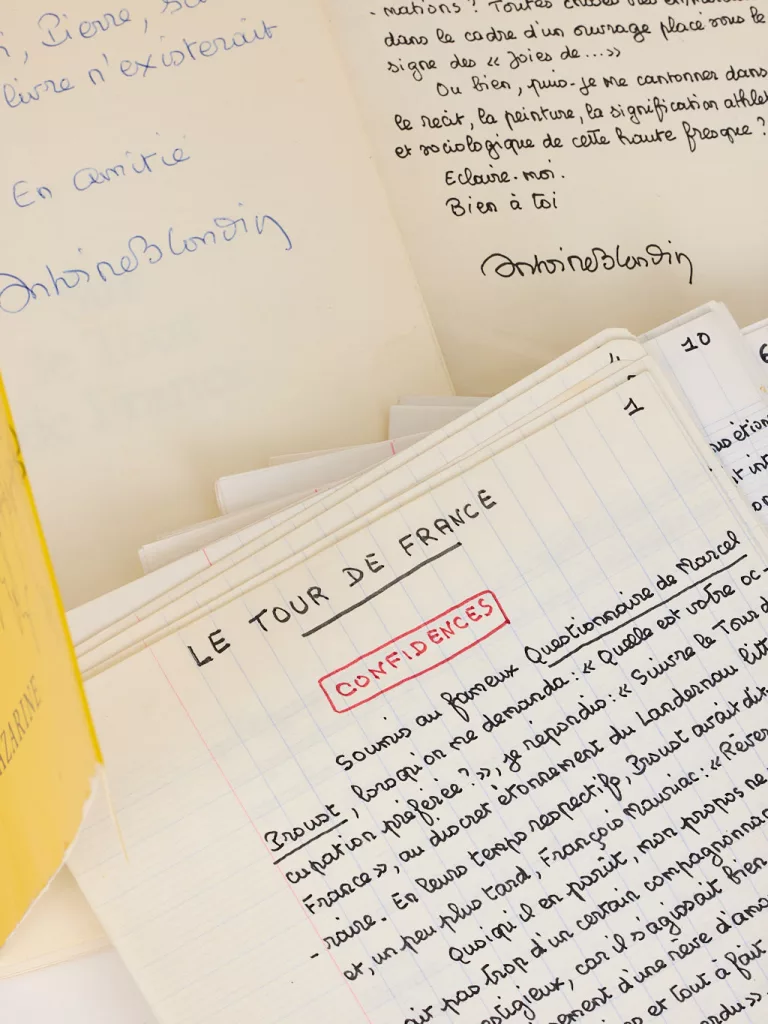 Pierre,
livre n'existerait
En amitié
Antoine Blondin
- mations ? Toutes
dans le cadre d'un ouvrage placé sous le
signe des « Joies de... »
Ou bien, puis-je me cantonner dans
le récit, la peinture, la signification
et sociologique de cette haute fresque ?
Eclaire-moi.
Bien à toi
Antoine Blondin
10
1
LE TOUR DE FRANCE
CONFIDENCES
Soumis au fameux Questionnaire de Marcel
Proust, lorsqu'on me demanda : « Quelle est votre oc-
cupation préférée ? », je répondis : « Suivre le Tour d
France », au discret étonnement du Landernau litté
- raire. En leurs temps respectifs, Proust avait dit
et, un peu plus tard, François Mauriac : « Rêver
Quoiqu'il en parût, mon propos ne
ait pas trop d'un certain compagnonnag
stigieux, car il s'agissait bien
ement d'une rêve d'amo
et tout à fait
rdu ».
AZARINE